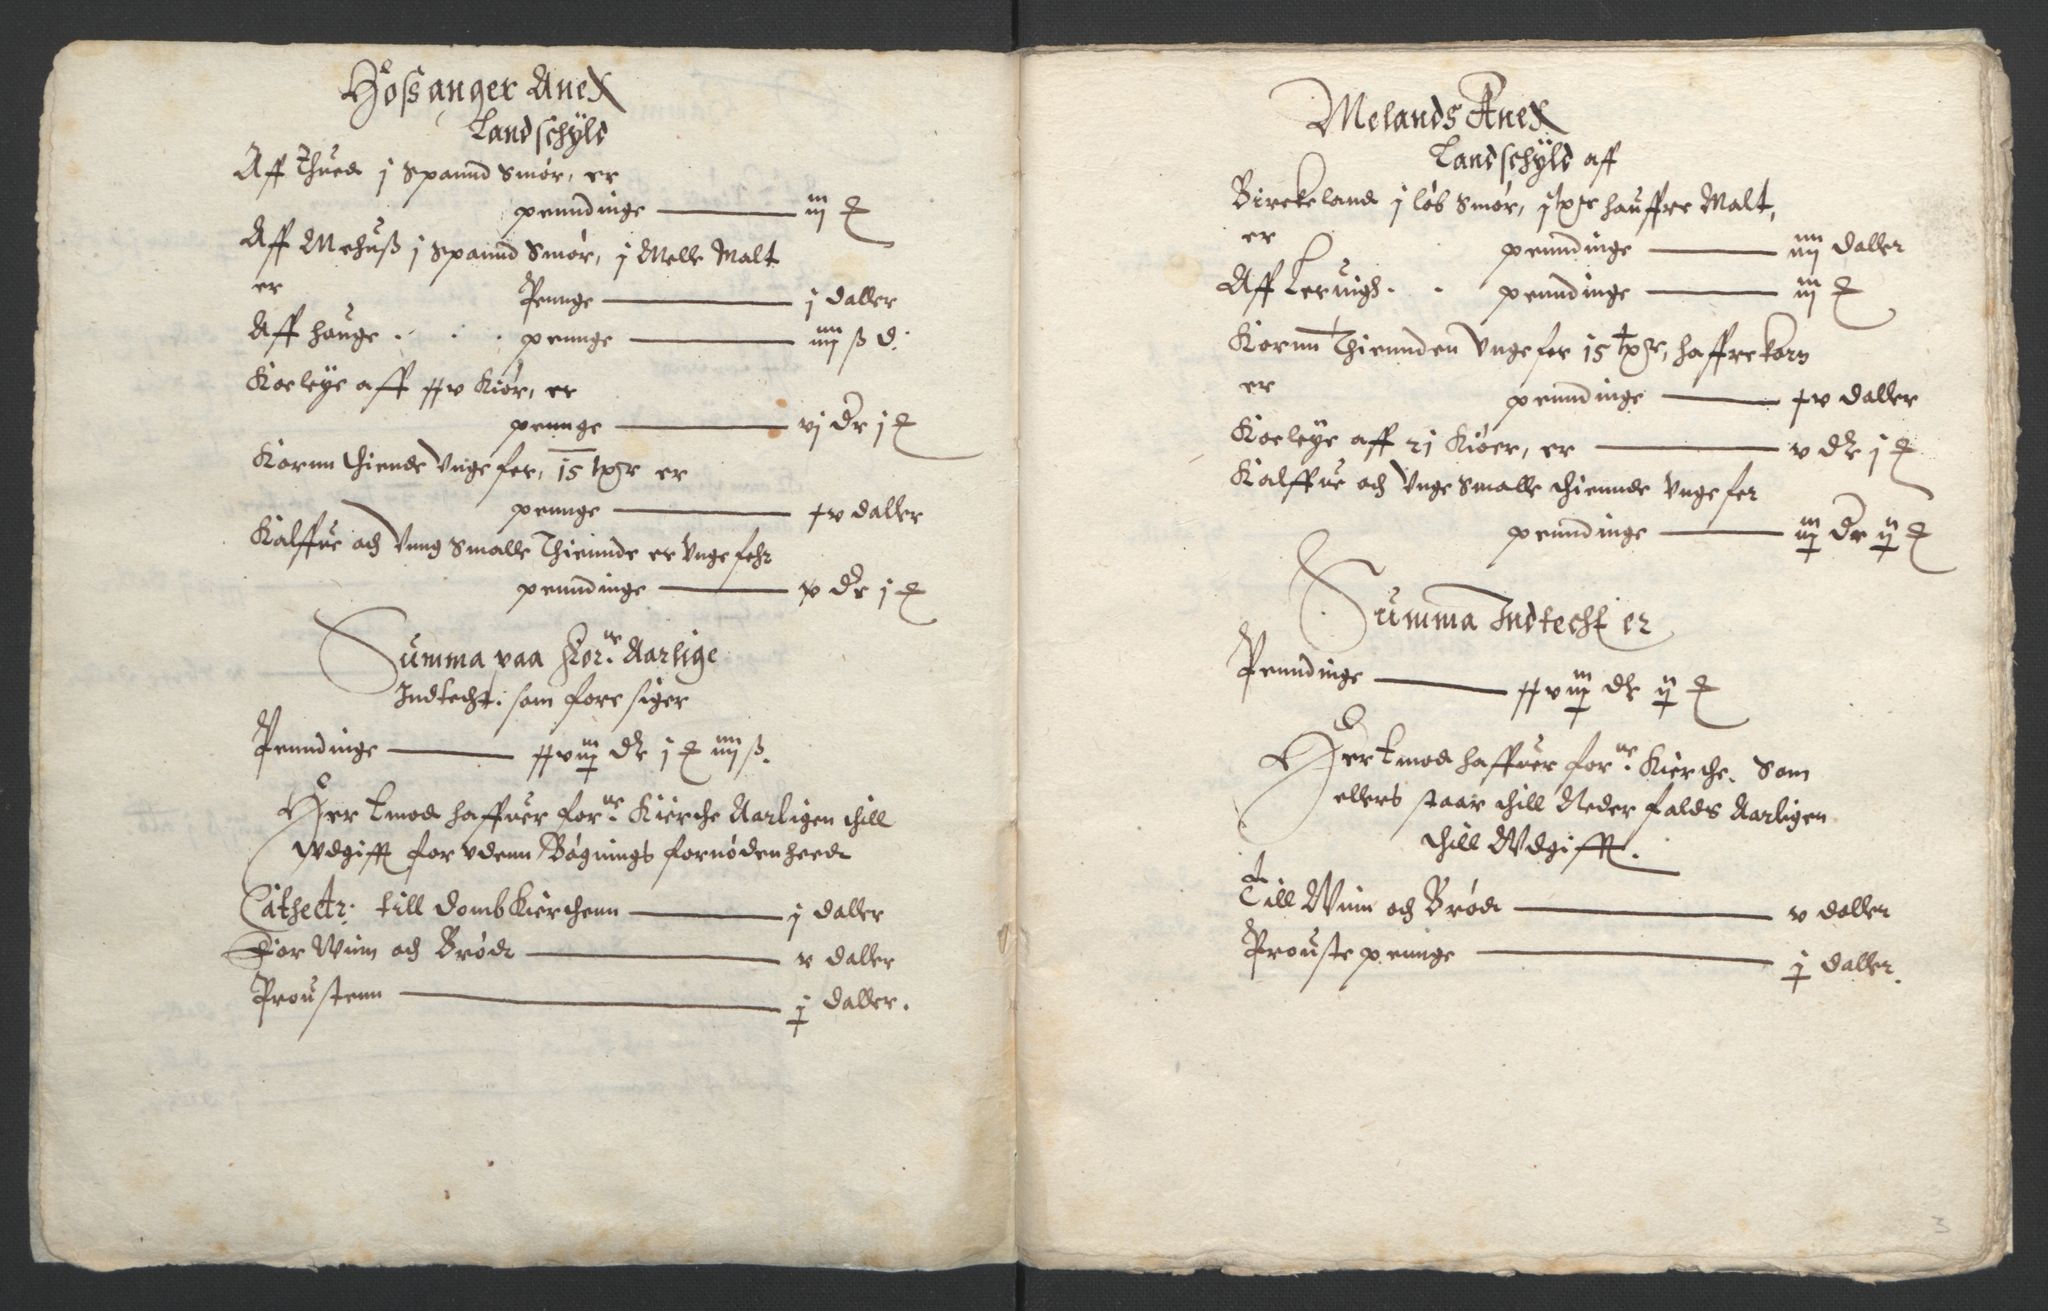 Hossanger Anex
Landschyld
Aff Thued j Spannd Smør, er
penndinge iij
Aff Mehuß j Spannd Smør, j Melle Malt
er Pennge j daller
Aff Hauge . . . pennge iiij ß d.
Koeleye aff xxv Kiør, er
pennge vj dr j
Kornn thiende Ungefer, 15 er
pennge xv daller
Kalffue och Vung Smalle Thiennde er Ungefehr
penndinge v dr j
Summa paa for.ne Aarlige
Indtecht. som fore siger
Penndinge xxviij dr j iiij ß.
Her Emod haffuer for.ne Kierche Aarligen thill
Wdgifft for vdenn Bøgnings fornødenheed
Cathedr: till Domb Kierchenn j daller
For Wiin och Brød v daller
Proustenn j daller.
Melands Anex
Landschyld aff
Birckeland j løb Smør, hauffre Malt,
er penndinge iiij daller
Aff Leruigh . . penndinge iij
Kornn Thiennden Ungefer 15 haffrekorn
er penndinge xv daller
Koeleye aff 21 Kiøer, er v dr j
Kalffue och Unge Smalle thiennde Ungefer
penndinge iij dr ij
Summa Indtecht er
Penndinge xxviij dr ij
Her Emod haffuer for.ne Kierche. Som
ellers staar thill Neder falds Aarligen
thill Wdgifft.
Till Wiin och Brød v daller
Prouste pennge j daller.
3